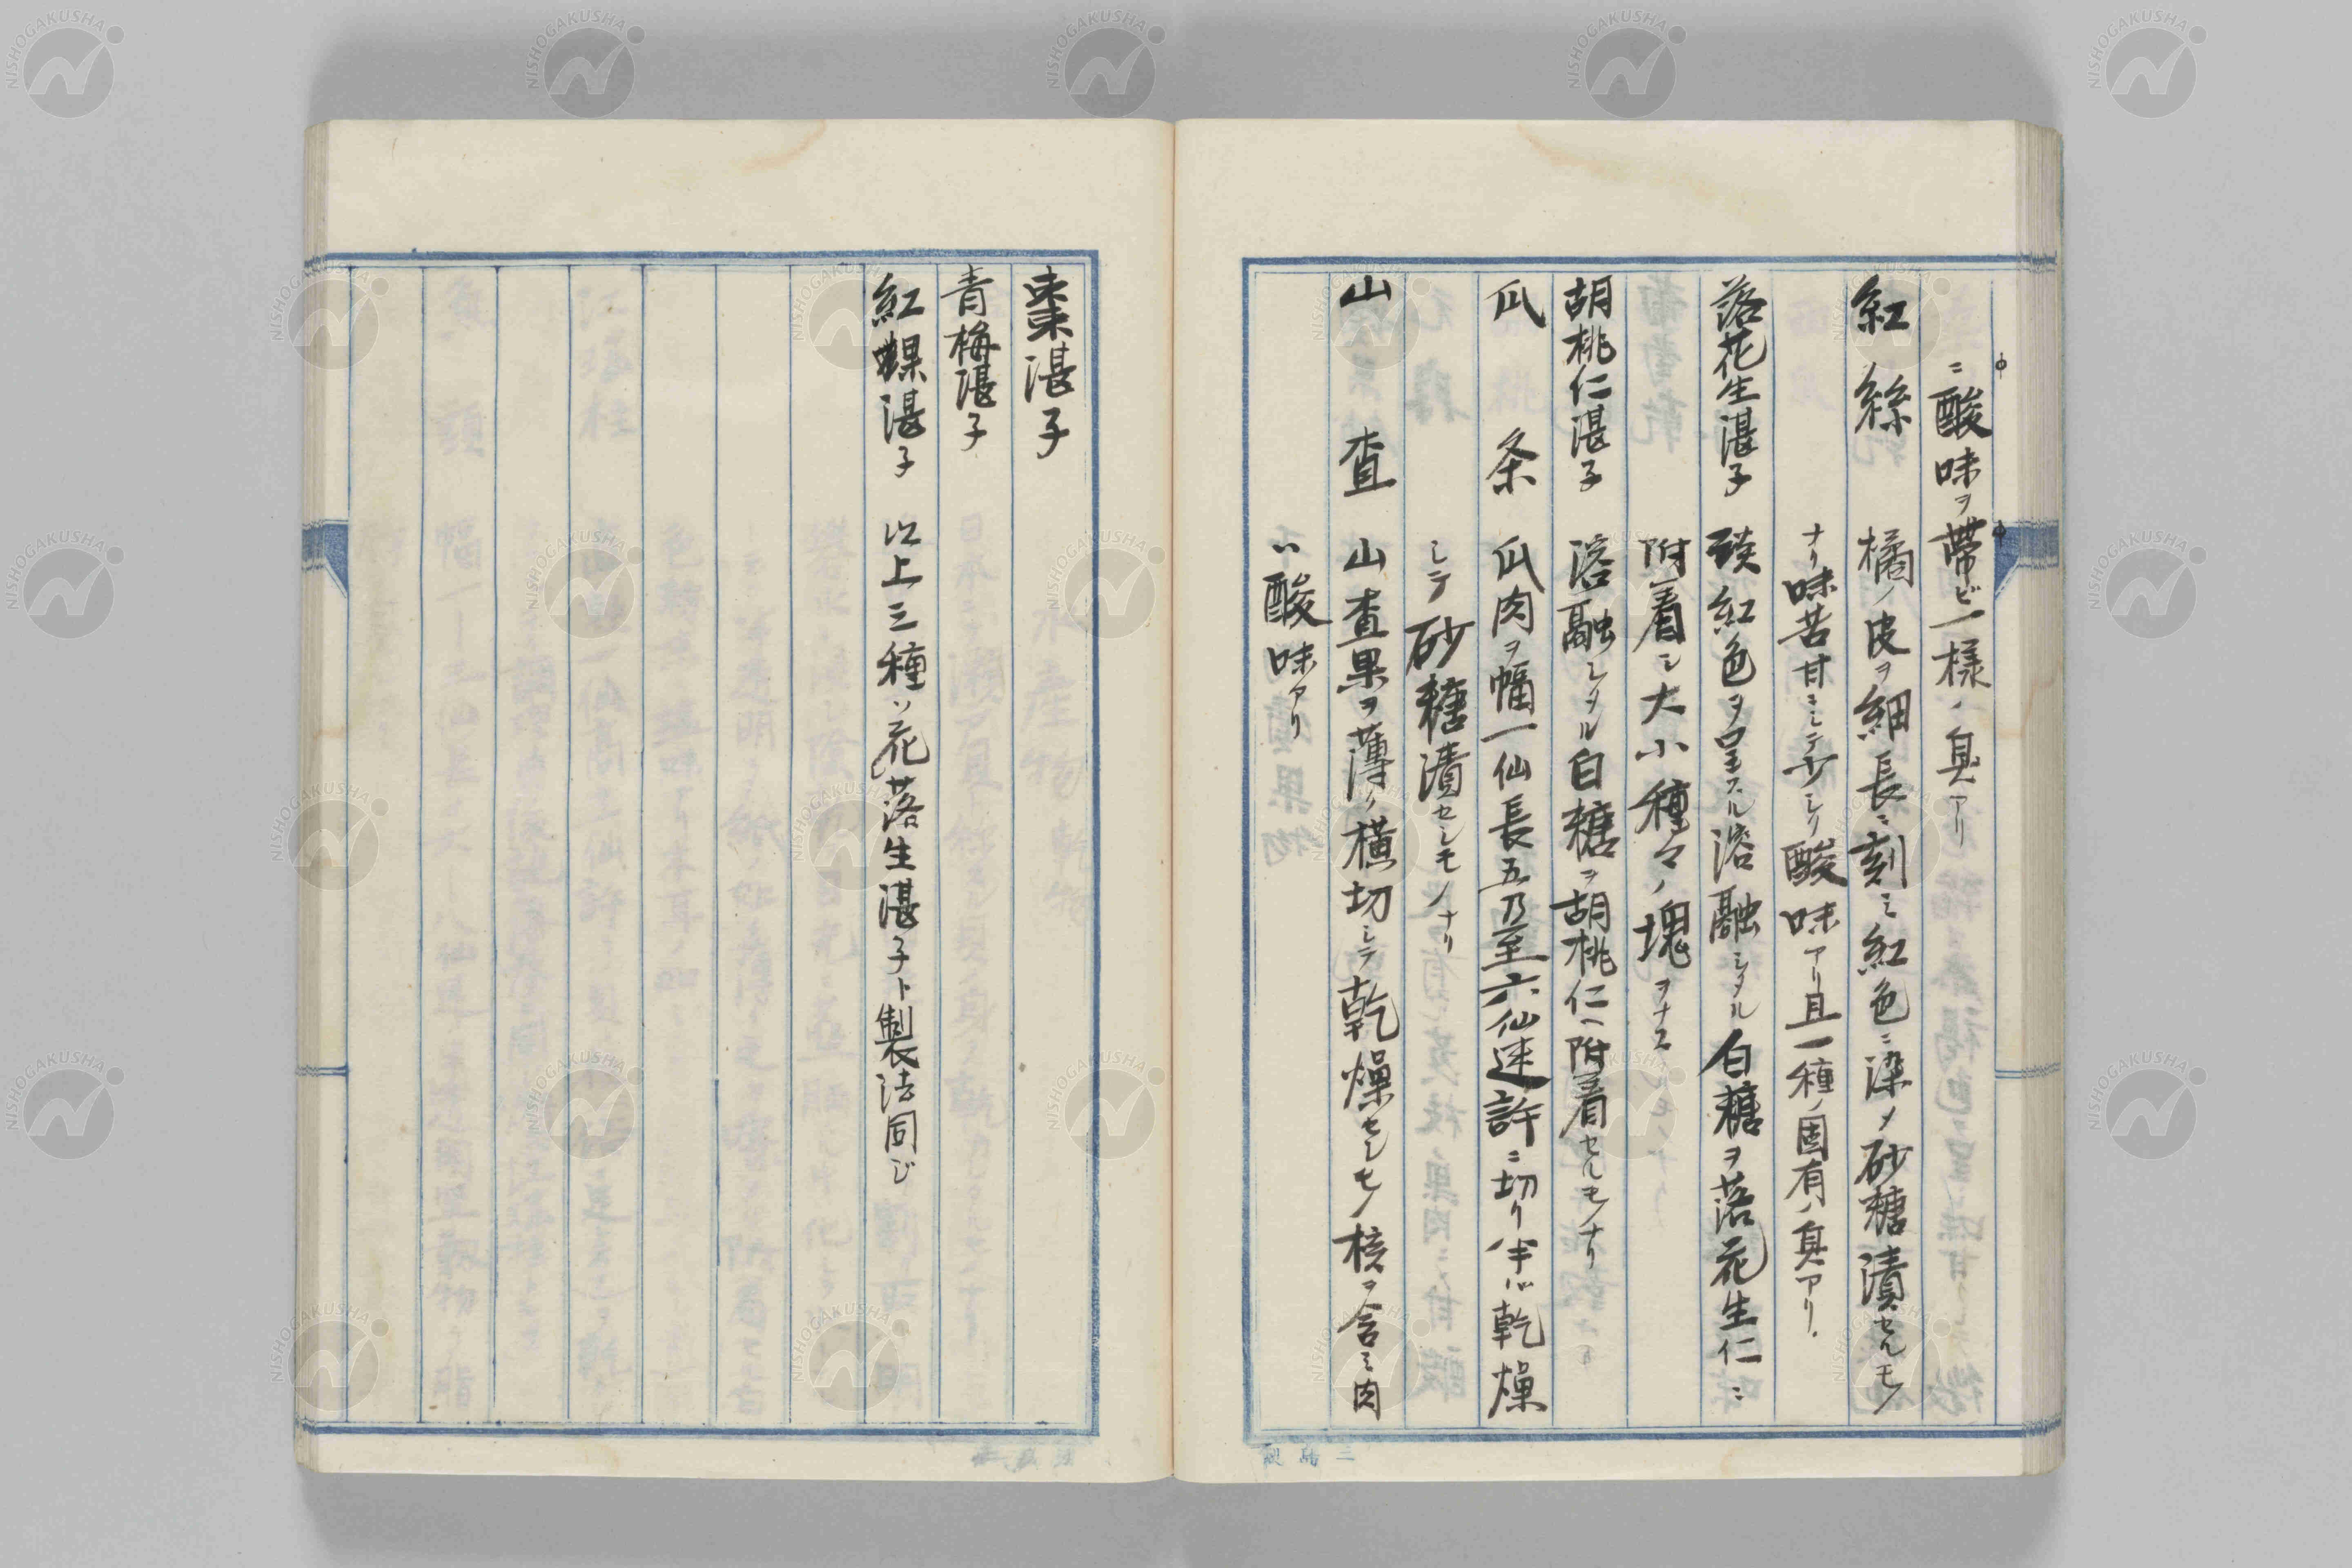 ニ酸味ヲ帯ビ一様ノ臭アリ
紅絲 橘ノ皮ヲ細長ニ刻ミ紅色ニ染メ砂糖漬セルモノ
ナリ味苦甘ニシテ少シク酸味アリ且一種ノ固有ノ臭アリ.
落花生湛子 淡紅色ヲ呈スル溶融シタル白糖ヲ落花生仁ニ
附着シ大小種々ノ塊ヲナス
胡桃仁湛子 溶融シタル白糖ヲ胡桃仁ヘ附着セルモノナリ
瓜条 瓜肉ヲ幅一仙長五乃至六仙迷許ニ切リ半バ乾燥
シテ砂糖漬セシモノナリ
山査 山査果ヲ薄ク横切シテ乾燥セシモノ核ヲ含ミ肉
ハ酸味アリ
棗湛子
青梅湛子
紅 湛子 以上三種ハ花落生湛子ト製法同ジ
NISHOGAKUSHA